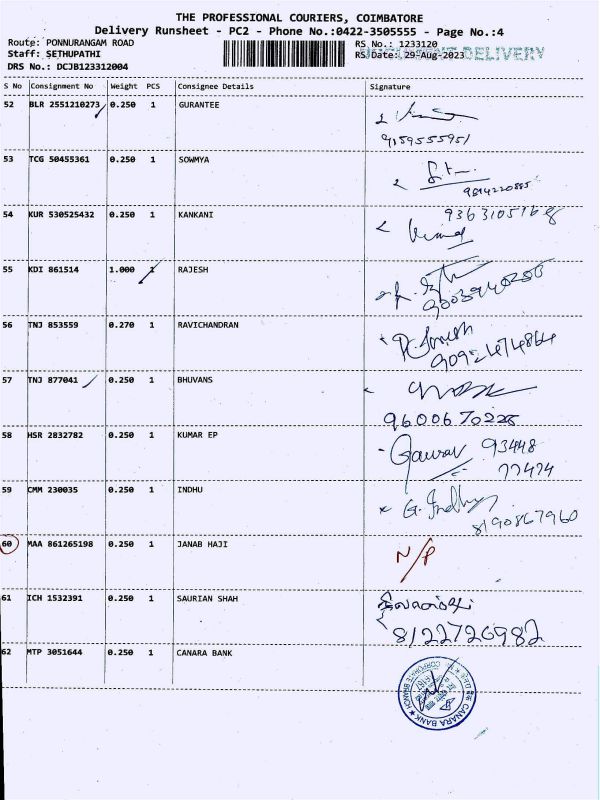 THE PROFESSIONAL COURIERS, COIMBATORE
Delivery Runsheet - PC2 - Phone No.:0422-3505555 - Page No.:4
Route: PONNURANGAM ROAD
RS No.: 1233120
Staff: SETHUPATHI
RS Date: 29-Aug-2023
DELIVERY
DRS No.: DCJB123312004
S No Consignment No Weight PCS Consignee Details Signature
52 BLR 2551210273 0.250 1 GURANTEE
9159555951
53 TCG 50455361 0.250 1 SOWMYA
54 KUR 530525432 0.250 1 KANKANI
55 KDI 861514 1.000 1 RAJESH
56 TNJ 853559 0.270 1 RAVICHANDRAN
57 TNJ 877041 0.250 1 BHUVANS
58 HSR 2832782 0.250 1 KUMAR EP
Gaurav 93448
77474
59 CMM 230035 0.250 1 INDHU
8190867960
60 MAA 861265198 0.250 1 JANAB HAJI N/P
61 ICH 1532391 0.250 1 SAURIAN SHAH
8122726982
62 MTP 3051644 0.250 1 CANARA BANK
CANARA BANK
CORPORATE BRANCH